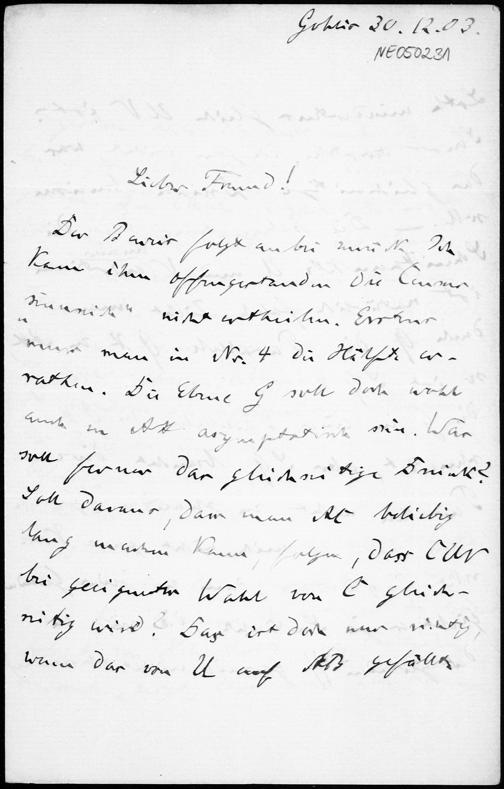 Gohlis 30.12.03.
NE050231
Lieber Freund!
Der Beweis folgt anbei zurück. Ich
kann ihm offengestanden die Censur
sinnreich nicht ertheilen. Erstens
muss man in No. 4 die Hälfte er-
rathen. Die Ebene G soll doch wohl
auch zu AH asymptotisch sein. Was
soll ferner das gleichseitige Dreieck?
Soll daraus, dass man AC beliebig
lang machen kann, folgen, dass CUV
bei geeigneter Wahl von C gleich-
seitig wird? Das ist doch nur richtig,
wenn das von U auf AB gefällte